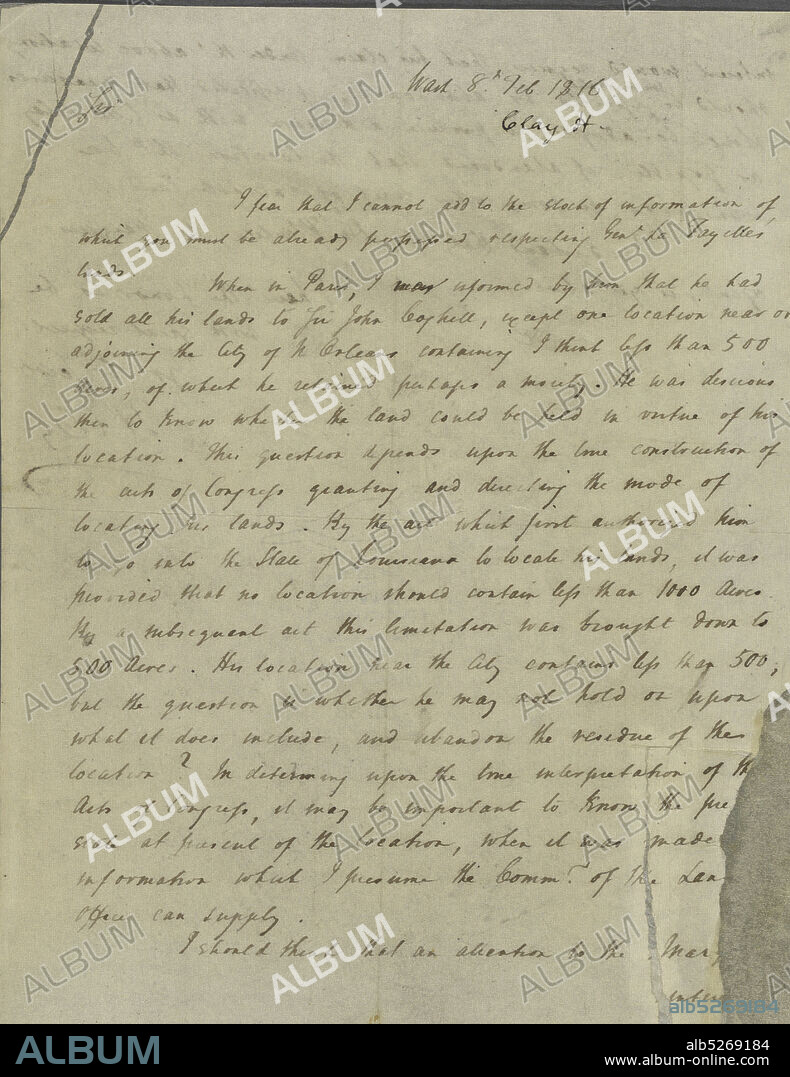 Wash 8th Feb 1816
Clay H.
I fear that I cannot add to the stock of information of
which you must be already possessed respecting Genl. La Fayettes
lands.
When in Paris, I was informed by him that he had
sold all his lands to Sir John Coghill, except one location near or
adjoining the City of N Orleans containing I think less than 500
Acres, of which he retained perhaps a moiety. He was desirous
then to know whether the land could be held in virtue of his
location. This question depends upon the true construction of
the acts of Congress granting and directing the mode of
locating his lands. By the act which first authorized him
to go into the State of Louisiana to locate his lands, it was
provided that no location should contain less than 1000 Acres.
By a subsequent act this limitation was brought down to
500 Acres. His location near the City contains less than 500,
but the question is whether he may not hold on upon
what it does include, and abandon the residue of the
location? In determing upon the true interpretation of th
Acts of Congress, it may be important to know the pre
state at present of the location, when it was made
information which I presume the Commr. of the Lan
Office can supply.
I should think that an attention to the Mary
inter
ALBUM
alb5269184
www.album-online.com